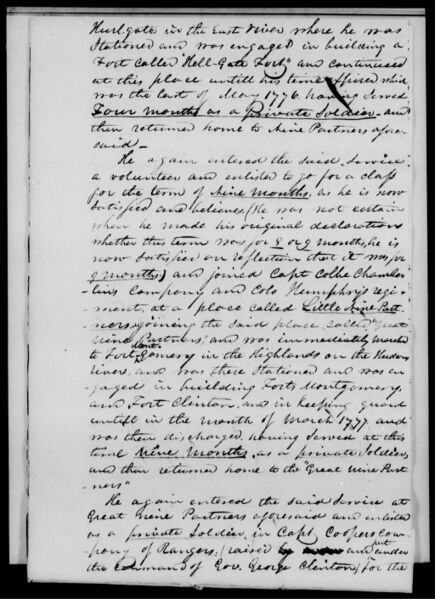 Hurlgate in the East River where he was
Stationed and was engaged in building a
Fort called "Hell-Gate Fort" and continued
at this place untill his time expired which
was the last of May 1776. having served
Four months as a private Soldier and
then returned home to Nine Partners afore-
said-
He again entered the said service
a volunteer and enlisted to go for a class
for the term of Nine months, as he is now
satisfied and believes, (He was not certain
when he made his original declaration
whether this term was for 8 or 9 months, he is
now satisfied on reflection that it was for
9 months,) and joined Capt Colbe Chamber-
lins company and Colo Humphrys regi-
ment, at a place called Little Nine Part-
ners, joining the said place called Great
Nine Partners, and was immediately marched
to Fort Montgomery in the Highlands on the Hudson
River, and was there Stationed and was en-
gaged in building Forts Montgomery,
and Fort Clinton, and in keeping guard
untill in the month of March 1777 and
was then discharged, having served at this
time Nine Months, as a private Soldier,
and then returned home to the "Great Nine Part-
ners"
He again entered the said service at
Great Nine Partners aforesaid and enlisted
as a private Soldier, in Capt Coopers com-
pany of Rangers, (raised and put under
the command of Gov. George Clinton) for the